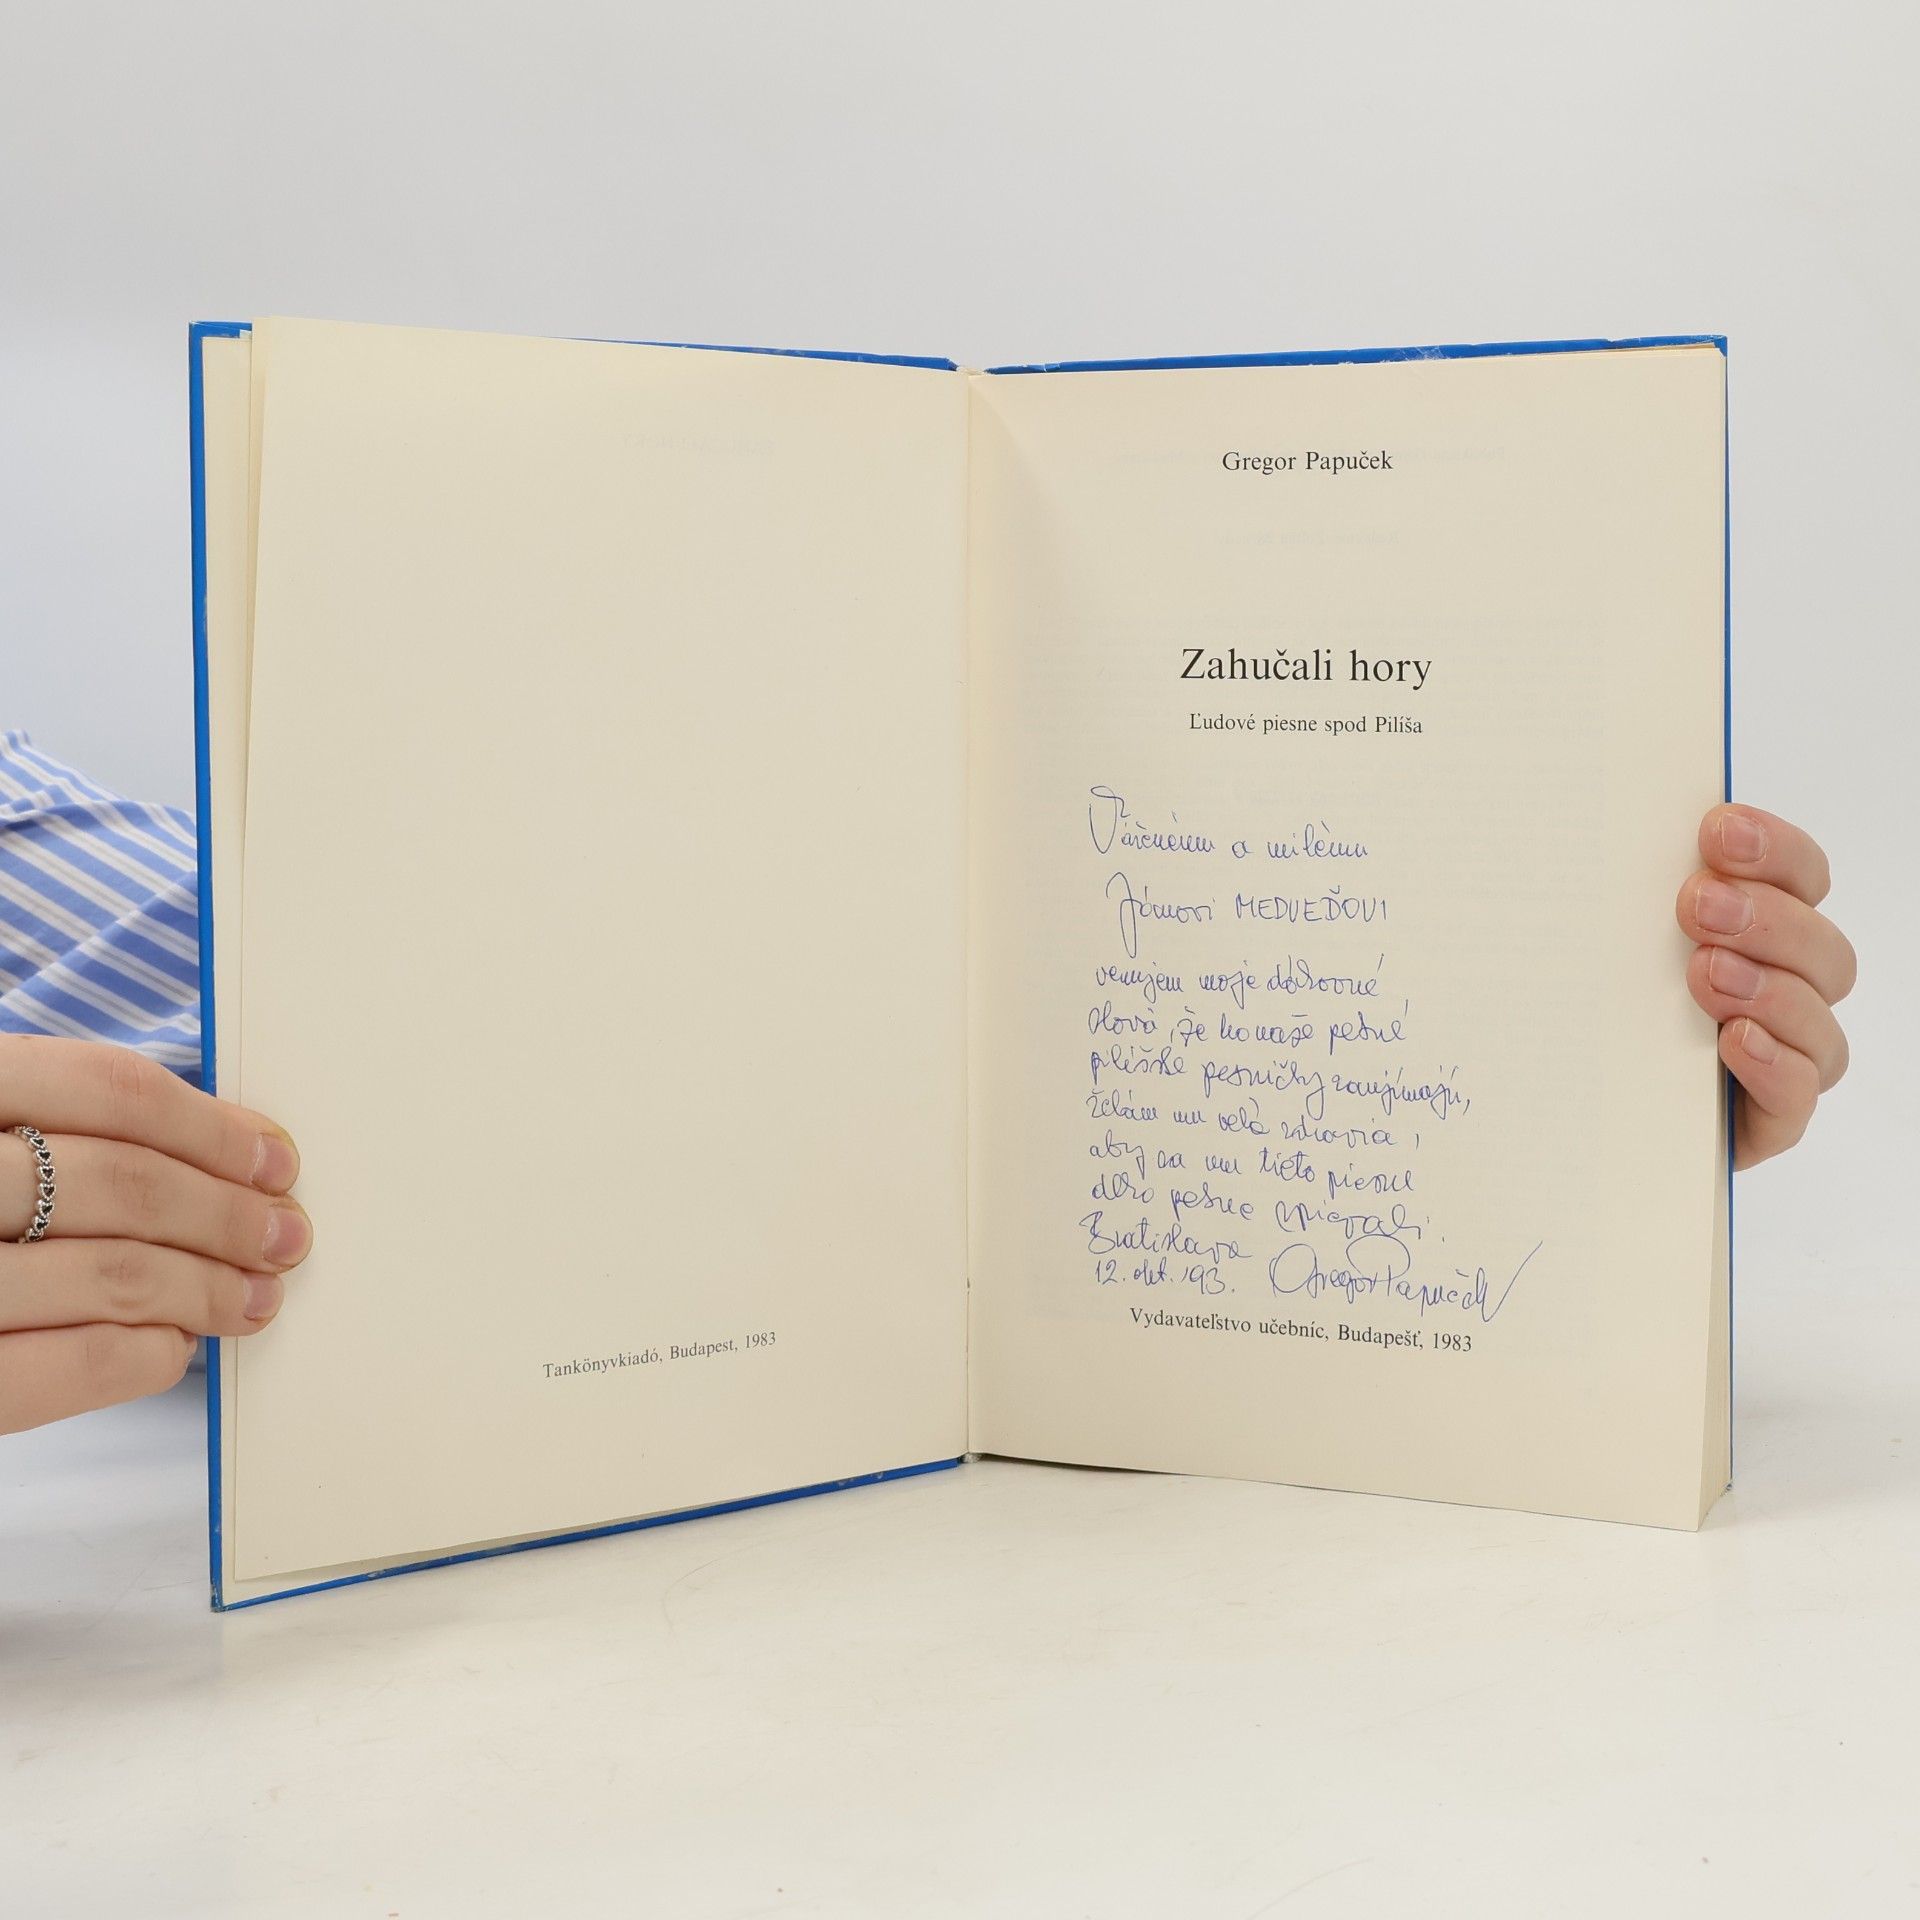 Tankönyvkiadó, Budapest, 1983
Gregor Papuček
Zahučali hory
Ľudové piesne spod Pilíša
Váženému a milému
Jánovi MEDVEĎOVI
venujem moje
slová, že ho naše pekné
pilíšske pesničky zaujímajú,
želám mu veľa zdravia,
aby sa mu tieto piesne
dlho pekne spievali.
Bratislava
12. okt. '93. Gregor Papuček
Vydavateľstvo učebníc, Budapešť, 1983